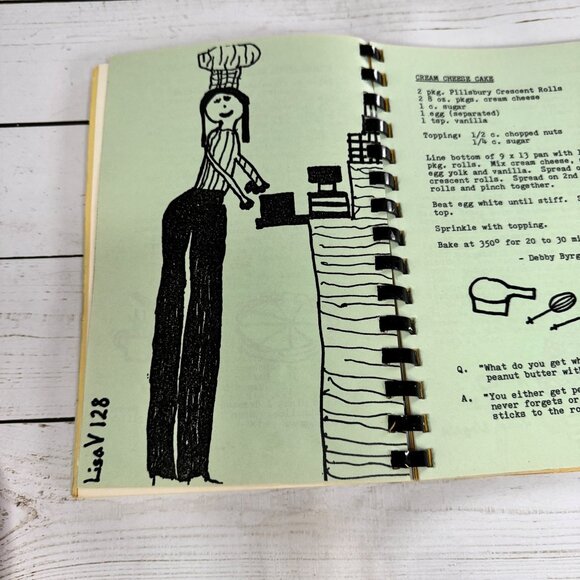 LisaV 128
CREAM CHEESE CAKE
2 pkg. Pillsbury Crescent Rolls
2 8 oz. pkgs. cream cheese
1 c. sugar
1 egg (separated)
1 tsp. vanilla
Topping: 1/2 c. chopped nuts
1/4 c. sugar
Line bottom of 9 x 13 pan with
pkg. rolls. Mix cream cheese,
egg yolk and vanilla. Spread
crescent rolls. Spread on 2nd
rolls and pinch together.
Beat egg white until stiff.
top.
Sprinkle with topping.
Bake at 350° for 20 to 30
- Debby
Q. "What do you get
peanut butter
A. "You either get
never forgets or
sticks to the